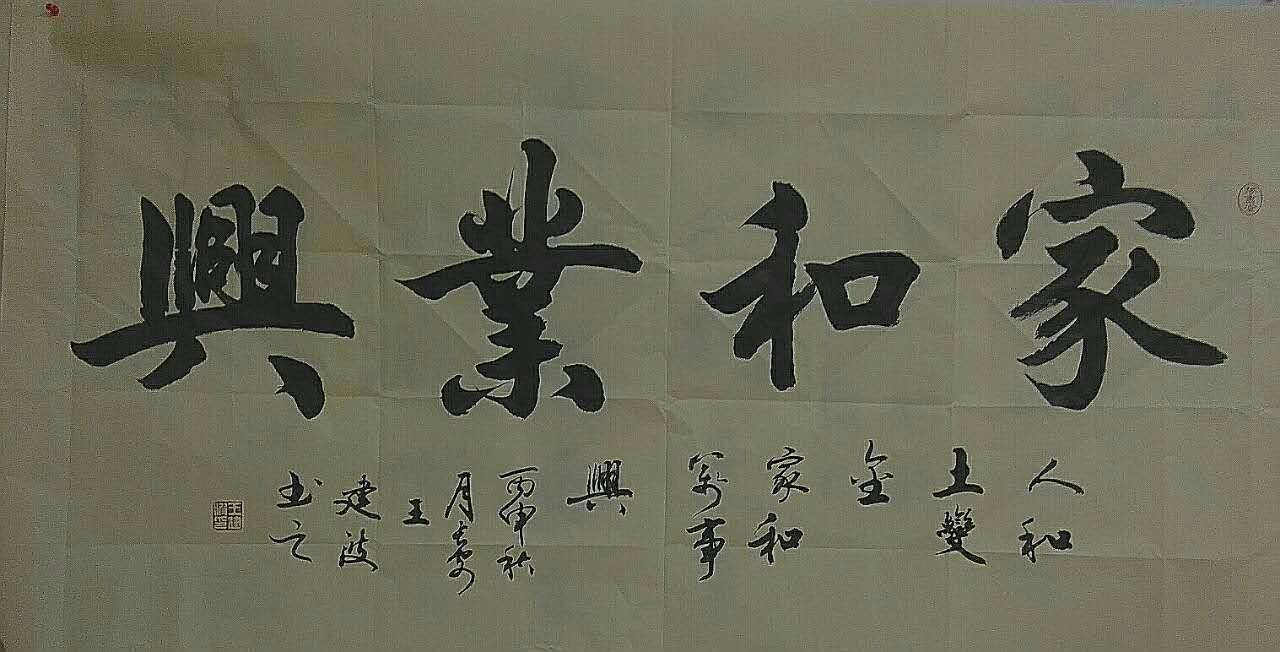 家和業興
人和
土變
金
家和
萬事
興
丙申秋
月
王
建波
书之